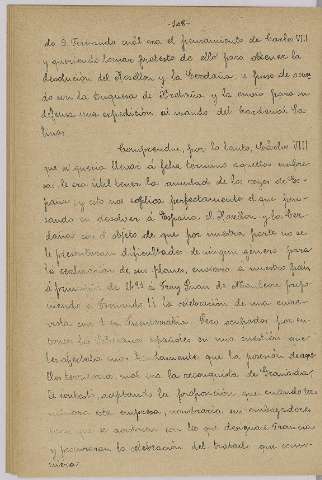 -108-
do D. Fernando cuál era el pensamiento de Carlos VIII
y queriendo tomar pretesto de ello para obtener la
devolucion del Rosellon y la Cerdaña, se puso de acuer
do con la Duquesa de Bretaña y la envió para su
defensa una expedicion al mando del
Comprendió, por lo tanto, Cárlos VIII
que si queria llevar á feliz término aquella empre
sa, le era útil tener la amistad de los reyes de Es
paña y esto nos esplica perfectamente el que pen
sando en devolver á España el Rosellon y la Cer
daña con el objeto de que por nuestra parte no se
le presentaran dificultades de ningun género para
la realizacion de sus planes, enviara á nuestro pais
á principios de á Fray Juan de Mauleon propo
niendo á Fernando la celebracion de una entre
vista con él en Fuenterrabía. Pero ocupados por en
tonces los Soberanos españoles en una cuestion que
les afectaba mas que la posesion de aque
llos territorios, cual era la reconquista de Granada,
le contestó, aceptando la proposicion, que cuando ter
minara esta empresa, nombraria sus embajadores
para que se avistaran con los que designase Francia
y procuraran la celebracion del tratado que convi
niera.